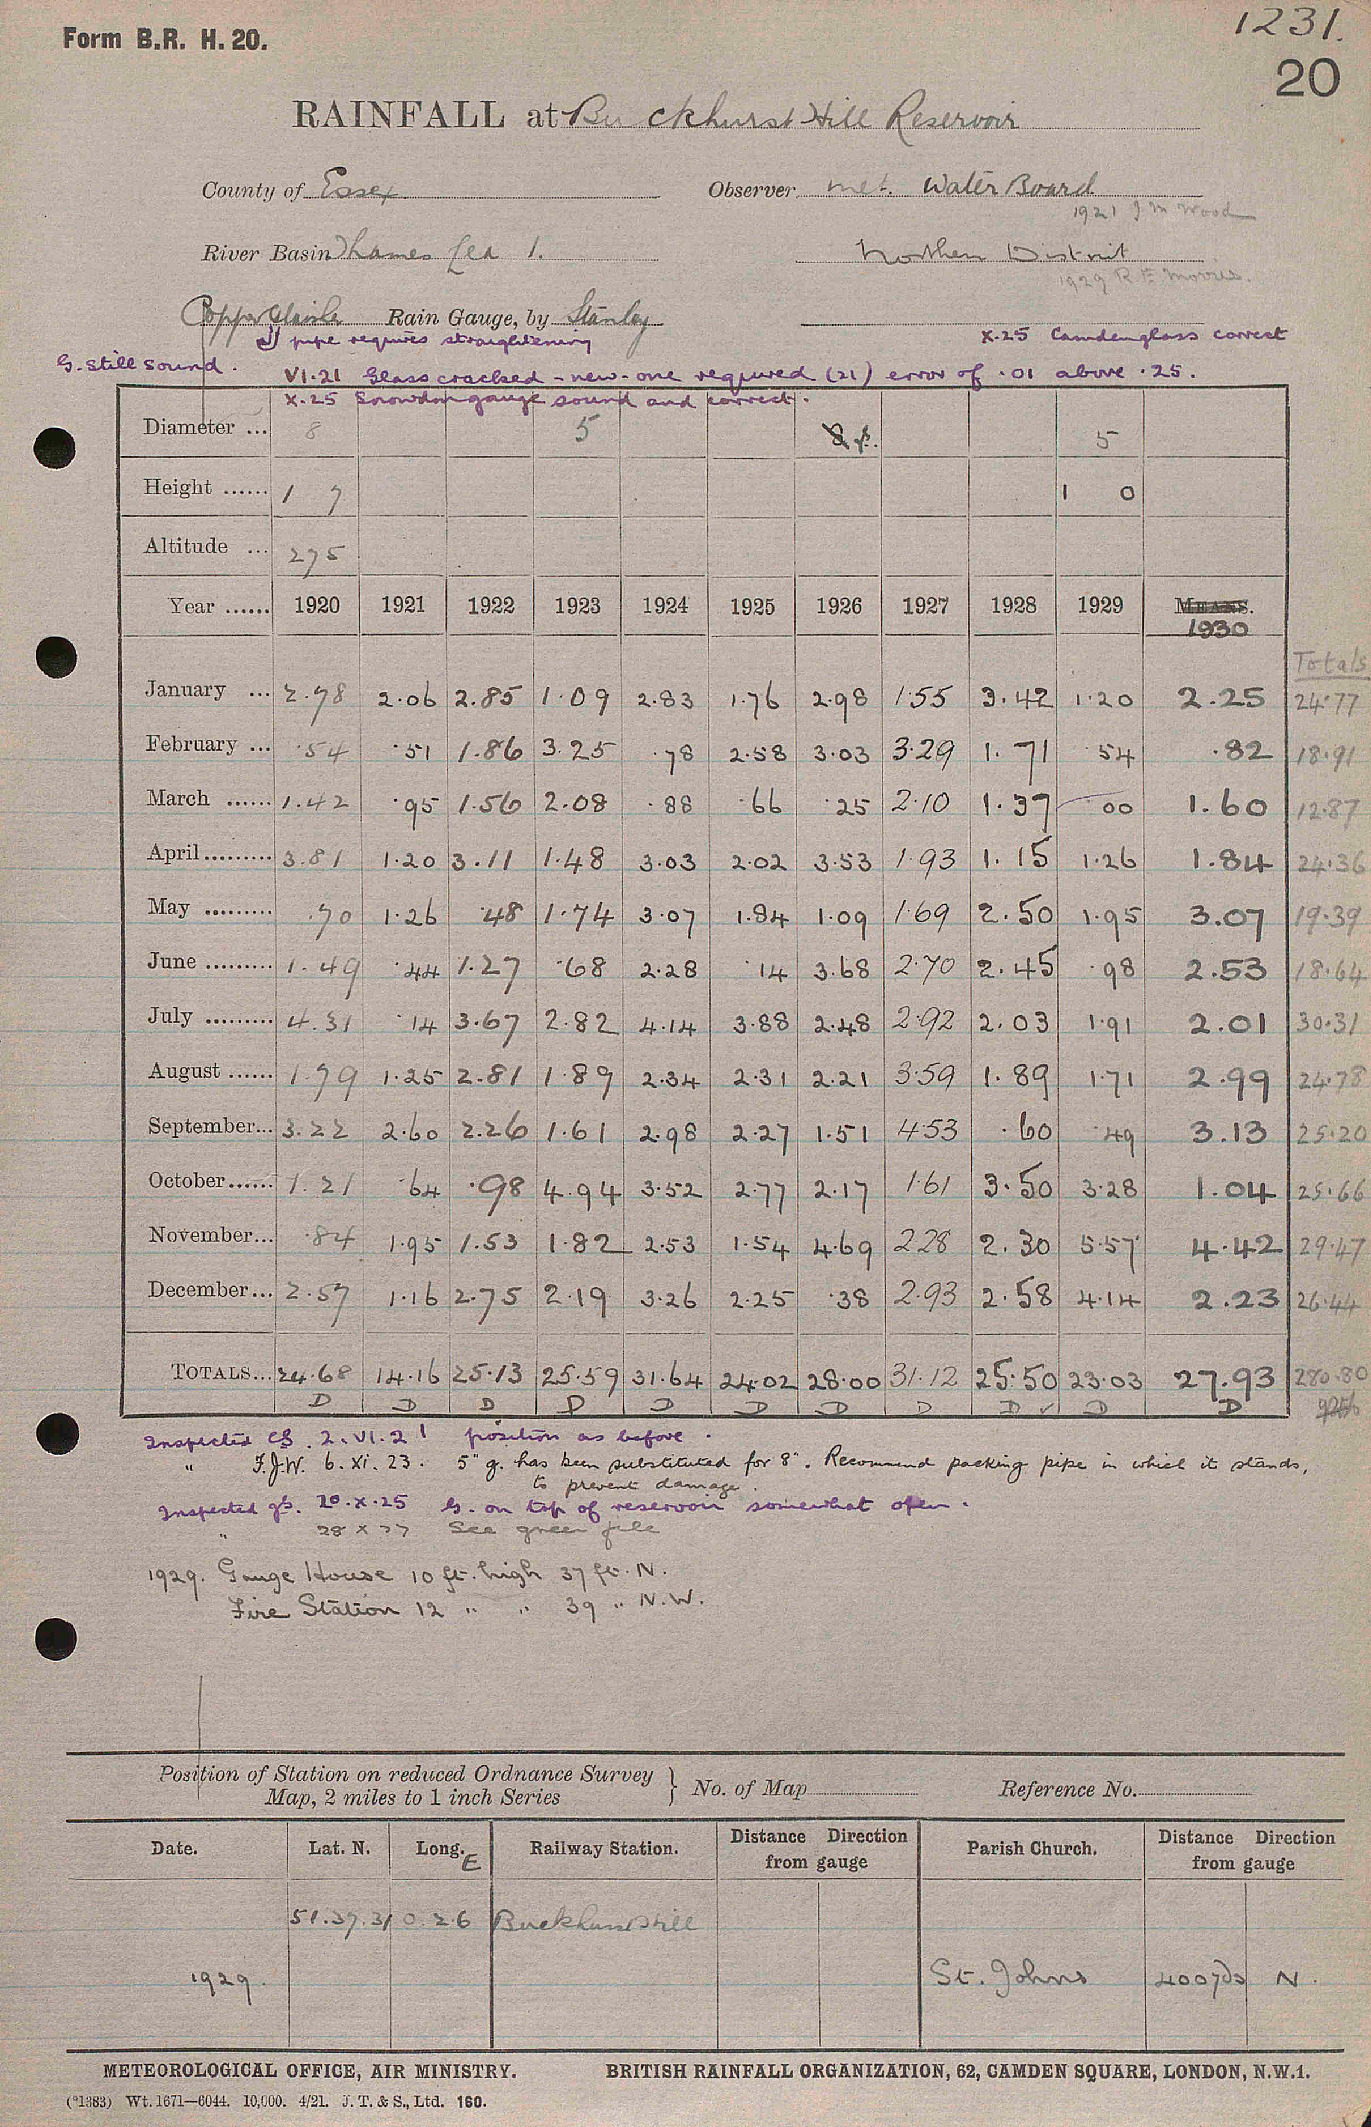 1231.
Form B.R. H. 20.
20
RAINFALL at Buckhurst Hill Reservoir
County of Essex
Observer Met. Water Board
1921 J M Wood
River Basin Thames Lea 1.
Northern District
1929 R E Morris.
Copper Rain Gauge, by Stanley
pipe requires straightening
X.25 Camden glass correct
G. still sound.
VI.21 Glass cracked - new one required (21) error of .01 above .25.
X.25 Snowdon gauge sound and correct.
Diameter ... 8 5 8 5
Height ...... 1 7 1 0
Altitude ... 275
Year ...... 1920 1921 1922 1923 1924 1925 1926 1927 1928 1929 MEANS. 1930
Totals
January ... 2.78 2.06 2.85 1.09 2.83 1.76 2.98 1.55 3.42 1.20 2.25 24.77
February ... .54 .51 1.86 3.25 .78 2.58 3.03 3.29 1.71 .54 .82 18.91
March ...... 1.42 .95 1.56 2.08 .88 .66 .25 2.10 1.37 .00 1.60 12.87
April ......... 3.81 1.20 3.11 1.48 3.03 2.02 3.53 1.93 1.15 1.26 1.84 24.36
May ......... .70 1.26 .48 1.74 3.07 1.84 1.09 1.69 2.50 1.95 3.07 19.39
June ......... 1.49 .44 1.27 .68 2.28 .14 3.68 2.70 2.45 .98 2.53 18.64
July ......... 4.31 .14 3.67 2.82 4.14 3.88 2.48 2.92 2.03 1.91 2.01 30.31
August ...... 1.79 1.25 2.81 1.89 2.34 2.31 2.21 3.59 1.89 1.71 2.99 24.78
September... 3.22 2.60 2.26 1.61 2.98 2.27 1.51 4.53 .60 .49 3.13 25.20
October...... 1.21 .64 .98 4.94 3.52 2.77 2.17 1.61 3.50 3.28 1.04 25.66
November... .84 1.95 1.53 1.82 2.53 1.54 4.69 2.28 2.30 5.57 4.42 29.47
December... 2.57 1.16 2.75 2.19 3.26 2.25 .38 2.93 2.58 4.14 2.23 26.44
TOTALS... 24.68 14.16 25.13 25.59 31.64 24.02 28.00 31.12 25.50 23.03 27.93 280.80
D D D D D D D D D ✓ D D
Inspected CS. 2.VI.21 position as before.
" F.J.W. 6.XI.23. 5" g. has been substituted for 8". Recommend packing pipe in which it stands,
to prevent damage.
Inspected gs. 20.X.25 G. on top of reservoir somewhat open.
" 28 X 27 See green file
1929. Gauge House 10 ft. high 37 ft. N.
Fire Station 12 " " 39 " N.W.
Position of Station on reduced Ordnance Survey Map, 2 miles to 1 inch Series } No. of Map Reference No.
Date. Lat. N. Long. E Railway Station. Distance Direction from gauge Parish Church. Distance Direction from gauge
51.37.31 0.2.6 Buckhurst Hill
1929. St. Johns 400 yds N.
METEOROLOGICAL OFFICE, AIR MINISTRY. BRITISH RAINFALL ORGANIZATION, 62, CAMDEN SQUARE, LONDON, N.W.1.
(*1383) Wt. 1671—6044. 10,000. 4/21. J. T. & S., Ltd. 160.